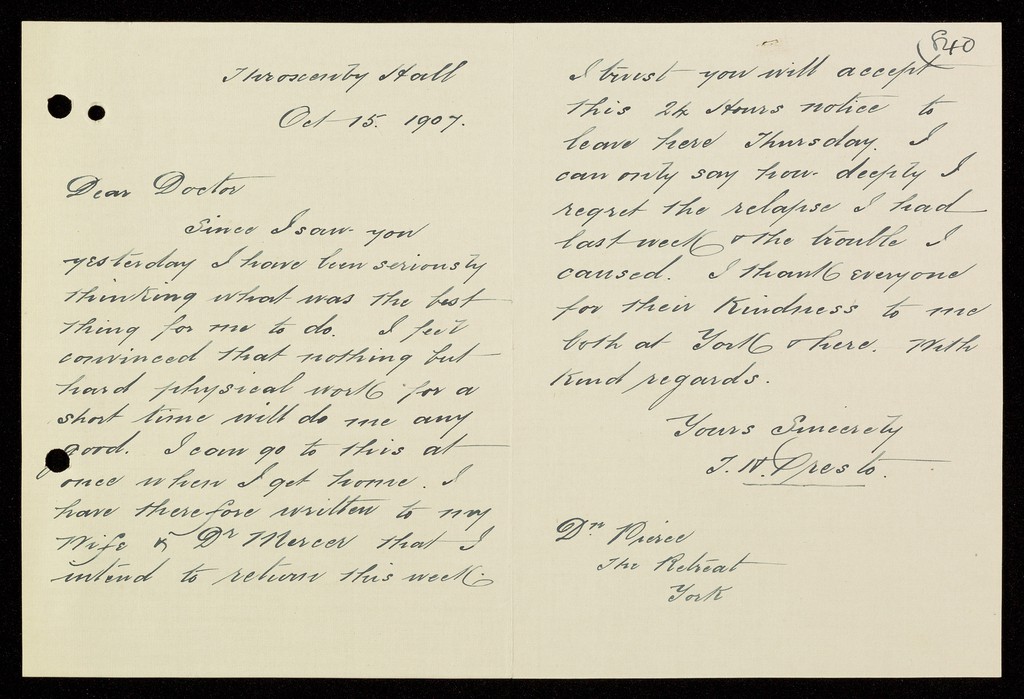 Throxenby Hall
Oct 15. 1907.
Dear Doctor
Since I saw you
yesterday I have been seriously
thinking what was the best
thing for me to do. I feel
convinced that nothing but
hard physical work for a
short time will do me any
good. I can go to this at
once when I get home. I
have therefore written to my
Wife & Dr Mercer that I
intend to return this week.
840
I trust you will accept
this 24 Hours notice to
leave here Thursday. I
can only say how deeply I
regret the relapse I had
last week & the trouble I
caused. I thank everyone
for their Kindness to me
both at York & here. With
Kind regards.
Yours Sincerely
J. N. Presto.
Dr Pierce
The Retreat
York